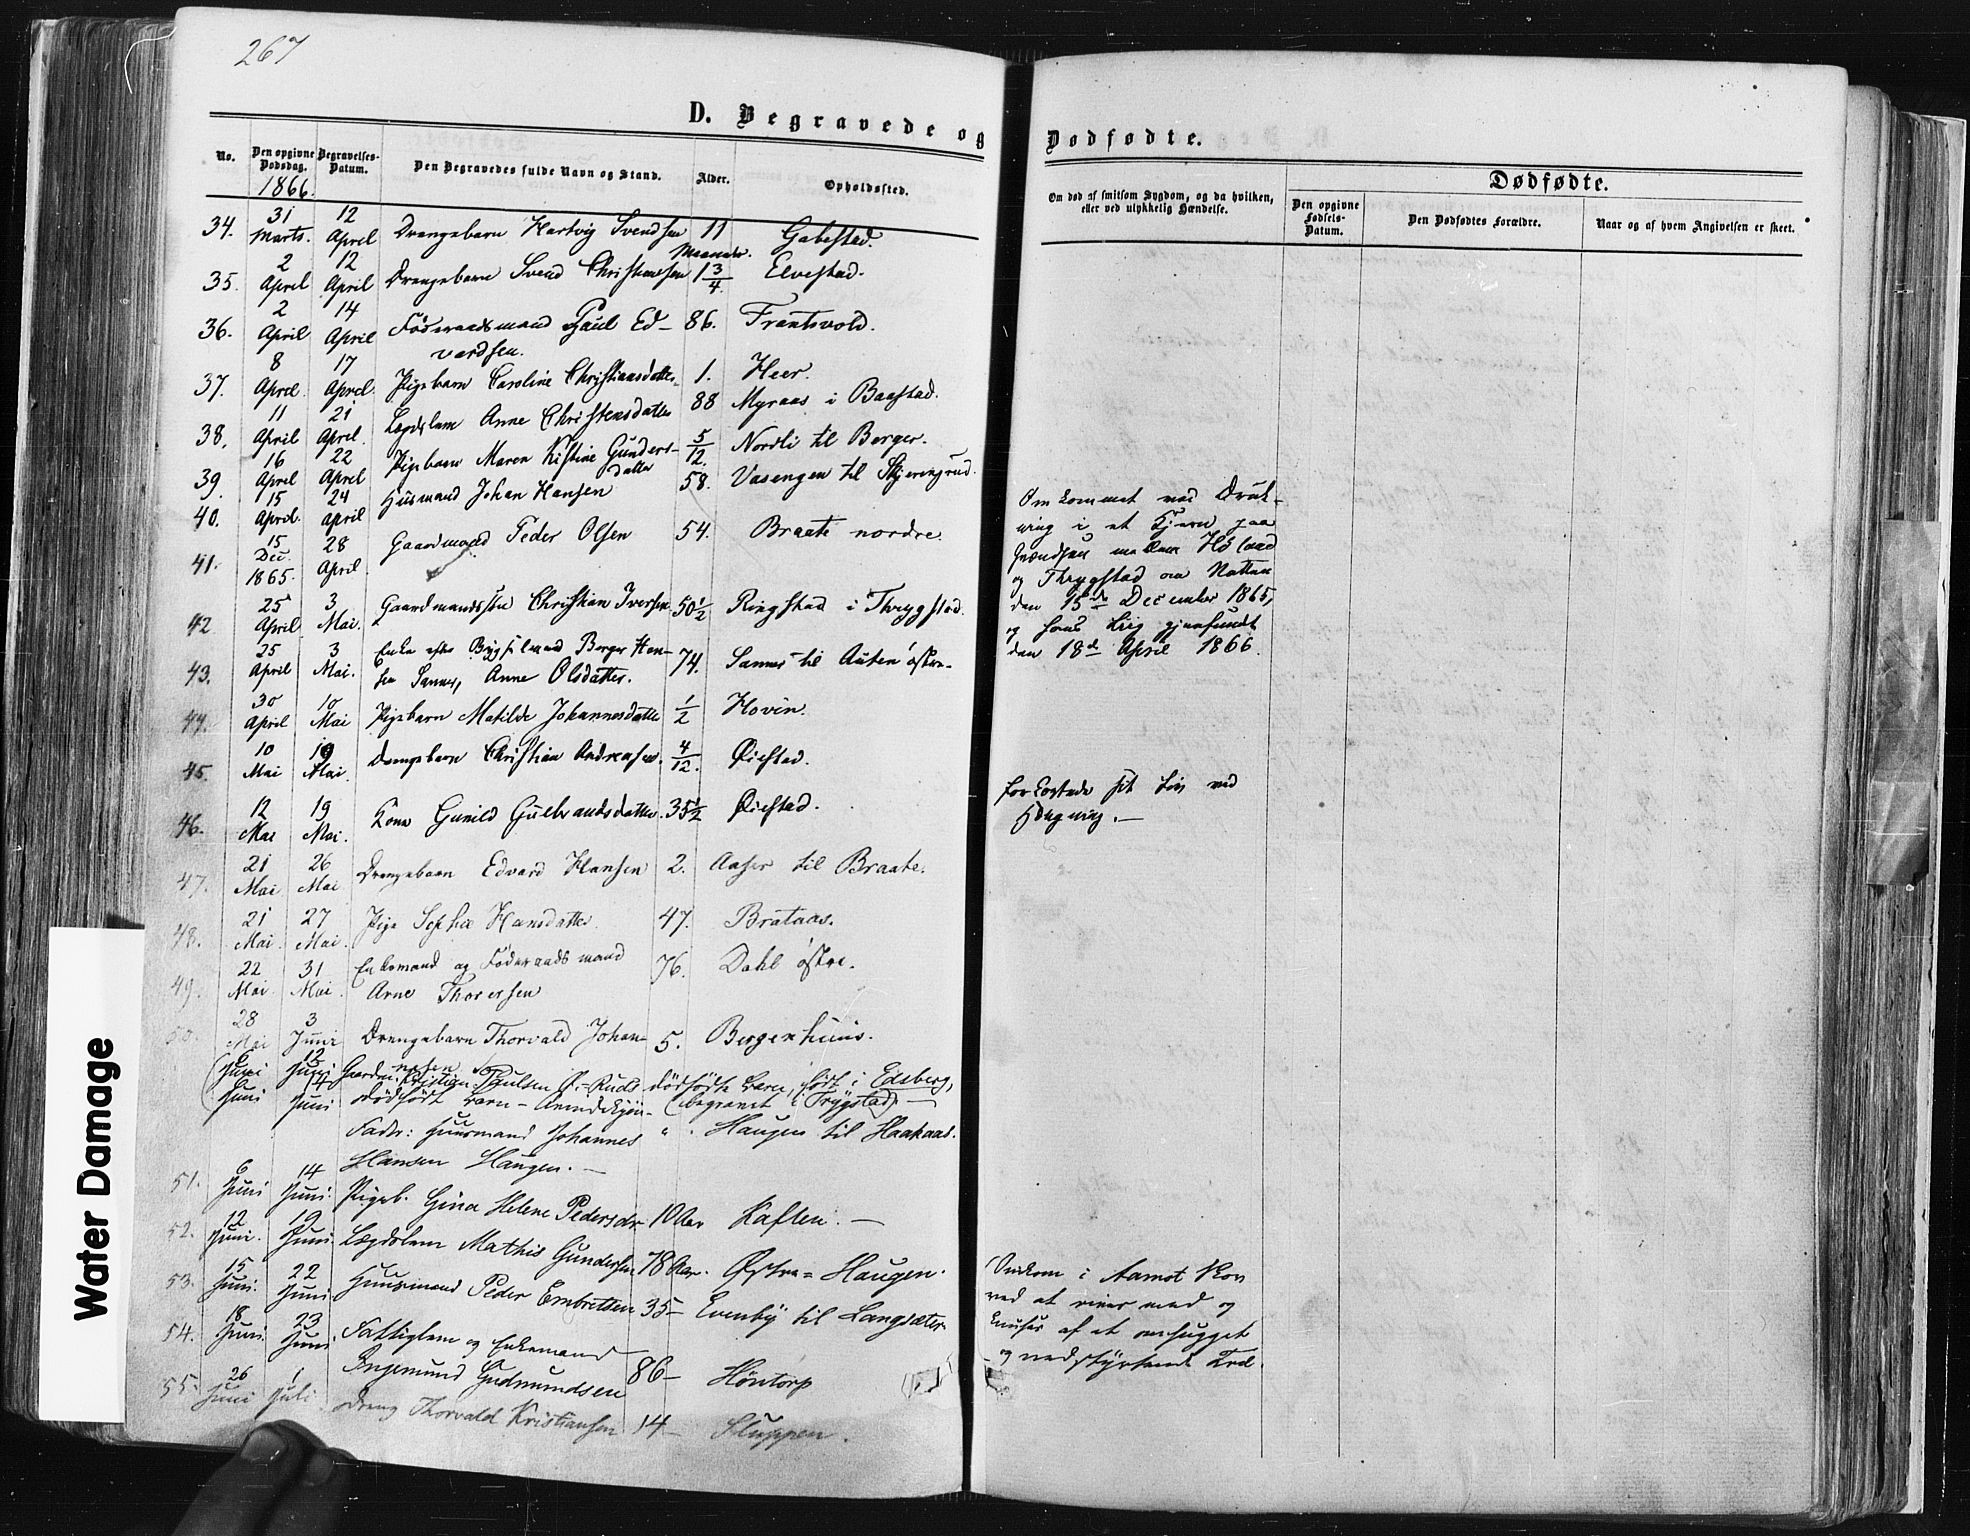 267
D. Begravede og
No.
Den opgivne Dødsdag.
1866.
Begravelses-Datum.
Den Begravedes fulde Navn og Stand.
Alder.
Opholdssted.
34. 31 Marts. 12 April Drengebarn Hartvig Svendsen 11 Maaneder. Gabestad.
35. 2 April 12 April Drengebarn Svend Christiansen 1 3/4 Elvestad.
36. 2 April 14 April Føderaadsmand Paul Ed-
vardsen. 86. Frantsvold.
37. 8 April 17 April. Pigebarn Caroline Christiansdatter 1. Heer.
38. 11 April 21 April. Lægdslem Anne Christensdatter 88 Myraas i Baastad.
39. 16 April 22 April Pigebarn Maren Kistine Gunders-
datter 5/12. Nordli til Borger.
40. 15 April. 24 April Husmand Johan Hansen 58. Vasengen til Skjerengrud.
41. 15 Dec. 1865. 28 April. Gaardmand Peder Olsen 54. Braate nordre.
42 25 April 3 Mai. Gaardmandssøn Christian Iversen 50 1/2 Ringstad i Thrygstad.
43. 25 April 3 Mai. Enke efter Bygselmand Borger Han-
sen Sanner, Anne Olsdatter. 74. Sanner til Auten østre.
44. 30 April 10 Mai Pigebarn Matilde Johannesdatter 1/2 Hovin.
45. 10 Mai 19 Mai. Drengebarn Christian Andreasen. 4/12. Øiestad.
46. 12 Mai 19 Mai. Kone Gunild Gulbrandsdatter. 35 1/2 Øiestad.
47. 21 Mai 26 Mai Drengebarn Edvard Hansen 2. Aaser til Braate.
48. 21 Mai. 27 Mai. Pige Sophie Hansdatter 47. Brataas.
49. 22 Mai. 31 Mai. Enkemand og Føderaadsmand
Arne Thoresen 76. Dahl østre.
50. 28 Mai 3 Juni Drengebarn Thorvald Johan-
nesen 5. Bergenhuus.
6 Juni 12 Juni Gaardm. Kristian Paulsen Ø.-Ruds dødfødte Barn, født i Edsberg,
(begravet i Trygstad)
6 Juni 14 Juni dødfødt Barn - Qvindekjøn -
Fader: Huusmand Johannes " . Haugen til Haakaas.
Hansen Haugen.
51. 6 Juni 14 Juni. Pigeb. Gina Helene Pedersdr 10 Aar Kaften.
52. 12 Juni. 19 Juni. Lægdslem Mathis Gundersen 78 Aar. Østre=Haugen.
53. 15 Juni. 22 Juni Huusmand Peder Embretsen 35- Evenby til Langsæter
54. 18 Juni. 23 Juni Fattiglem og Enkemand
Ingemund Gudmundsen 86- Høntorp
55. 26 Juni 1 Juli Dreng Thorvald Kristiansen 14- Sluppen.
Dødfødte.
Om død af smitsom Sygdom, og da hvilken,
eller ved ulykkelig Hændelse.
Dødfødte.
Den opgivne Fødsels-Datum.
Den Dødfødtes Forældre.
Naar og af hvem Angivelsen er skeet.
Omkommet ved Druk-
ning i et Kjern paa
Grændsen mellem Høland
og Thrygstad om Natten
den 15de December 1865,
og hans Liig gjenfundet
den 18de April 1866.
forkortede sit Liv ved
Hængning.
Omkom i Aamot Skov
ved at rives med og
knuses af et omhugget
og nedstyrtende Træ.
Water Damage